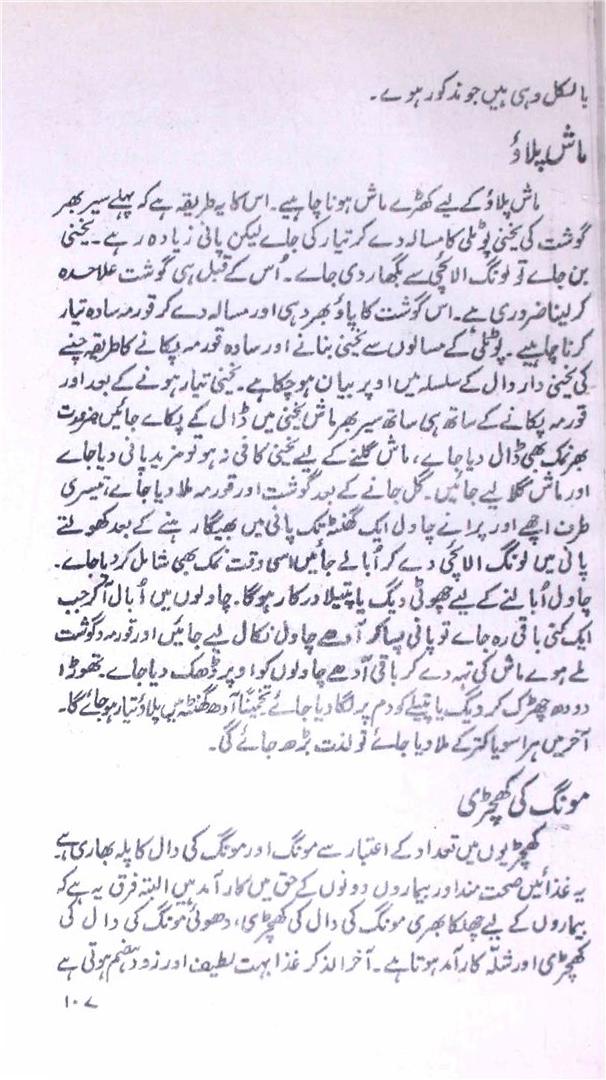 بالکل وہی ہیں جو مذکور ہوے۔
ماش پلاؤ
ماش پلاؤ کے لیے کھڑے ماش ہونا چاہیے۔ اس کا یہ طریقہ ہے کہ پہلے سیر بھر
گوشت کی یخنی پوٹلی کا مسالہ دے کر تیار کی جاے لیکن پانی زیادہ رہے۔ یخنی
بن جاے تو لونگ الائچی سے بگھار دی جاے۔ اُس کے قبل ہی گوشت علاحدہ
کر لینا ضروری ہے۔ اس گوشت کا پاؤ بھر دہی اور مسالہ دے کر قورمہ سادہ تیار
کرنا چاہیے۔ پوٹلی کے مسالوں سے یخنی بنانے اور سادہ قورمہ پکانے کا طریقہ چنے
کی یخنی دار دال کے سلسلہ میں اوپر بیان ہو چکا ہے۔ یخنی تیار ہونے کے بعد اور
قورمہ پکانے کے ساتھ ہی ساتھ سیر بھر ماش یخنی میں ڈال کے پکاے جائیں ضرورت
بھر نمک بھی ڈال دیا جاے، ماش گلنے کے لیے یخنی کافی نہ ہو تو مزید پانی دیا جاے
اور ماش گلا لیے جائیں۔ گل جانے کے بعد گوشت اور قورمہ ملا دیا جاے، تیسری
طرف اچھے اور پرانے چاول ایک گھنٹہ تک پانی میں بھیگا رہنے کے بعد کھولتے
پانی میں لونگ الائچی دے کر اُبالے جائیں اسی وقت نمک بھی شامل کر دیا جاے۔
چاول اُبالنے کے لیے چھوٹی دیگ یا پتیلا درکار ہوگا۔ چاولوں میں اُبال آ کر جب
ایک کنی باقی رہ جاے تو پانی پسا کر آدھے چاول نکال لیے جائیں اور قورمہ و گوشت
ملے ہوے ماش کی تہہ دے کر باقی آدھے چاولوں کو اوپر ڈھک دیا جاے۔ تھوڑا
دودھ چھڑک کر دیگ یا پتیلے کو دم پر لگا دیا جائے تخمیناً آدھ گھنٹہ میں پلاؤ تیار ہو جائے گا۔
آخر میں ہرا سویا کتر کے ملا دیا جائے تو لذت بڑھ جائے گی۔
مونگ کی کھچڑی
کھچڑیوں میں تعداد کے اعتبار سے مونگ اور مونگ کی دال کا پلہ بھاری ہے
یہ غذائیں صحت مند اور بیماروں دونوں کے حق میں کارآمد ہیں البتہ فرق یہ ہے کہ
بیماروں کے لیے چھلکا بھری مونگ کی دال کی کھچڑی، دھوئی مونگ کی دال کی
کھچڑی اور شلّہ کارآمد ہوتا ہے۔ آخر الذکر غذا بہت لطیف اور زود ہضم ہوتی ہے
۱۰۷